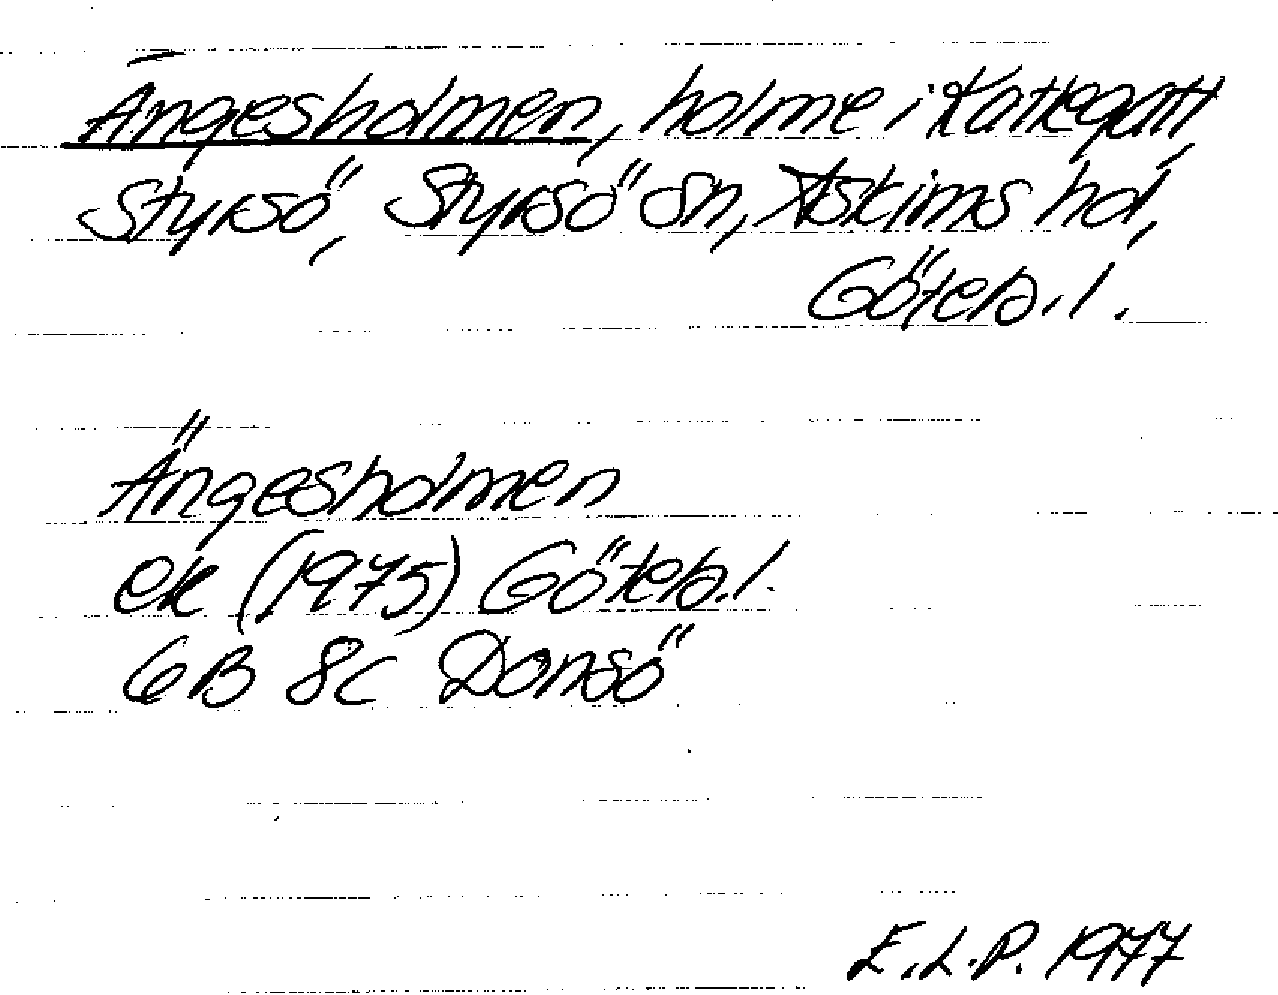 Ängesholmen, holme i Kattegatt,
Styrsö, Styrsö sn, Askims hd,
Göteb. l.
Ängesholmen
ek (1975) Göteb. l.
6B 8c Donsö
E.L.P. 1977